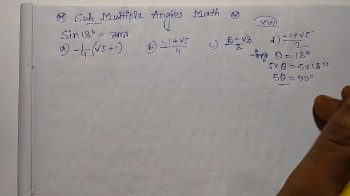 Sub Multiple Angles Math
XVI
Sin 18° = মান
a) -¼(√5+1) b) (-1+√5)/4 c) d) (-1+√5)/2
θ = 18°
5×θ = 5×18°
5θ = 90°